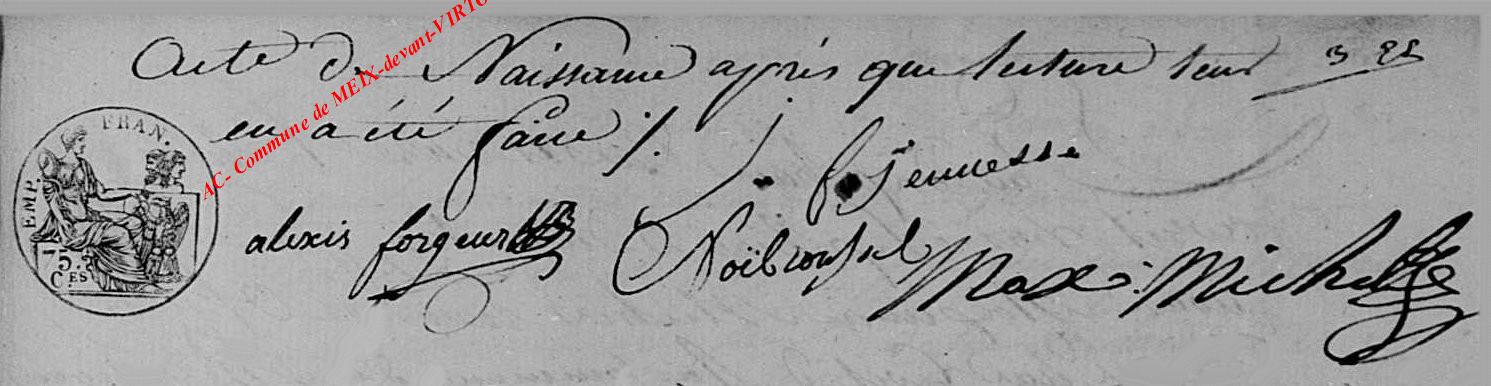 AC- Commune de MEIX-devant-VIRTO
Acte de Naissance après que lecture leur
en a été faite /.
EMP. FRAN.
75
CES
f Jeunesse
alexis forgeur
Noël roussel
Max: Michel